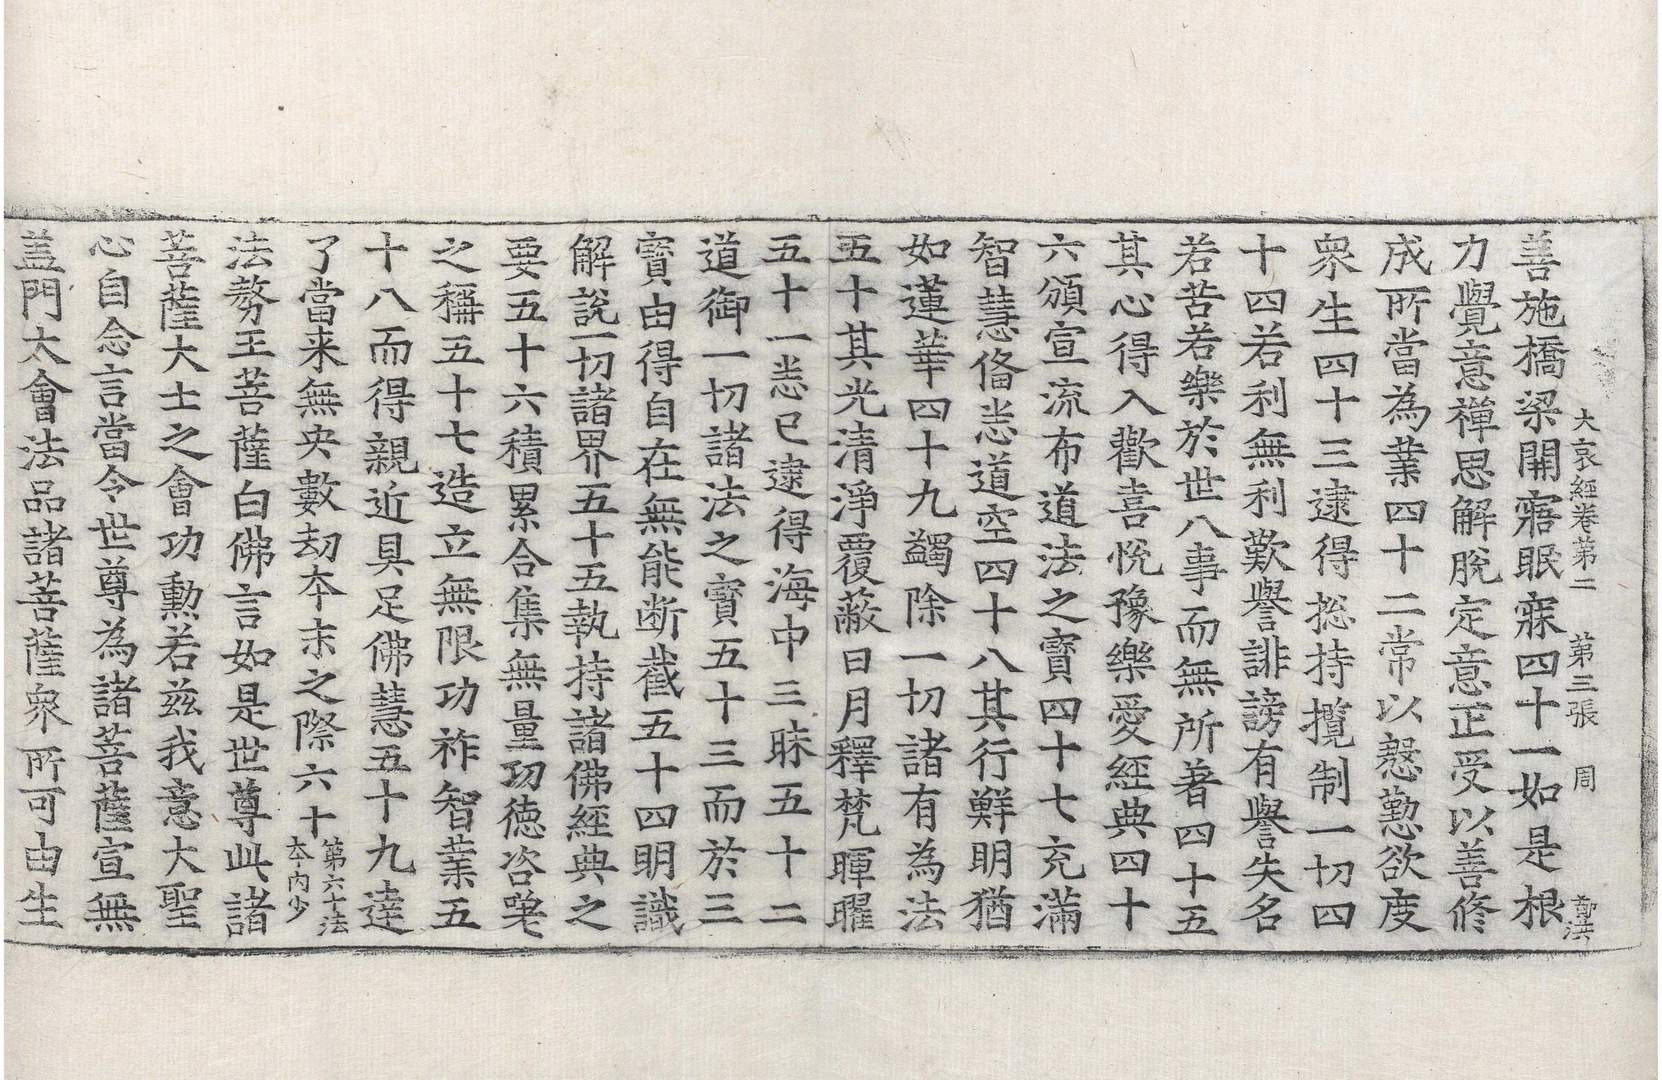 大哀經卷第二　第三張　周　鄭洪
善施橋梁開寤眠寐四十一如是根
力覺意禪思解脫定意正受以善修
成所當為業四十二常以慇懃欲度
衆生四十三逮得揔持攬制一切四
十四若利無利歎譽誹謗有譽失名
若苦若樂於世八事而無所著四十五
其心得入歡喜悅豫樂愛經典四十
六頒宣流布道法之寶四十七充滿
智慧俻恣道空四十八其行鮮明猶
如蓮華四十九蠲除一切諸有為法
五十其光清淨覆蔽日月釋梵暉曜
五十一恣已逮得海中三昧五十二
道御一切諸法之寶五十三而於三
寶由得自在無能断截五十四明識
解說一切諸界五十五執持諸佛經典之
要五十六積累合集無量功徳咨嗟
之稱五十七造立無限功祚智業五
十八而得親近具足佛慧五十九達
了當来無央數劫夲末之際六十第六十法夲内少
法勢王菩薩白佛言如是世尊此諸
菩薩大士之會功勲若兹我意大聖
心自念言當令世尊為諸菩薩宣無
盖門大會法品諸菩薩衆所可由生